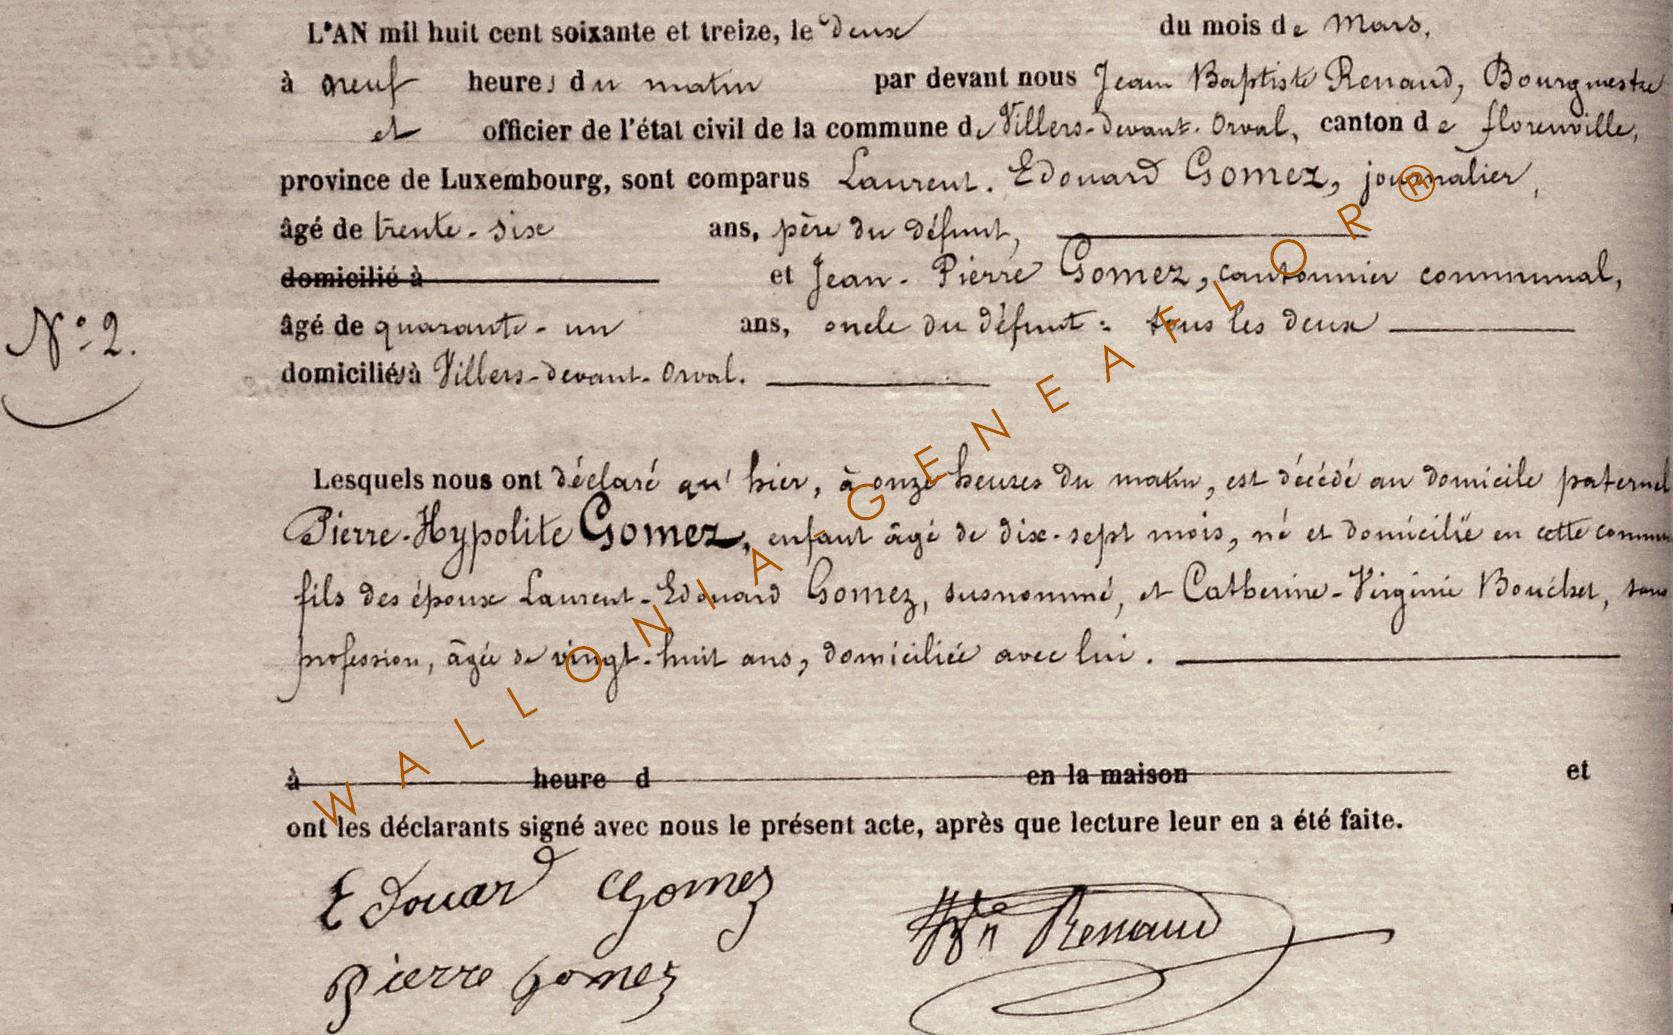 L'AN mil huit cent soixante et treize, le deux du mois de Mars,
à neuf heures du matin par devant nous Jean Baptiste Renaud, Bourgmestre
et officier de l'état civil de la commune de Villers-devant-Orval, canton de florenville,
province de Luxembourg, sont comparus Laurent-Edouard Gomez, journalier,
âgé de trente-six ans, père du défunt,
domicilié à et Jean-Pierre Gomez, cantonnier communal,
N° 2.
âgé de quarante-un ans, oncle du défunt: tous les deux
domiciliés à Villers-devant-Orval.
Lesquels nous ont déclaré qu'hier, à onze heures du matin, est décédé au domicile paternel
Pierre-Hypolite Gomez, enfant âgé de dix-sept mois, né et domicilié en cette
fils des époux Laurent-Edouard Gomez, susnommé, et Catherine-Virginie Bouchet, sans
profession, âgée de vingt-huit ans, domiciliée avec lui.
à heure d en la maison et
ont les déclarants signé avec nous le présent acte, après que lecture leur en a été faite.
Edouard Gomez
Renaud
Pierre Gomez
WALLONIA-GENEAFLOR®